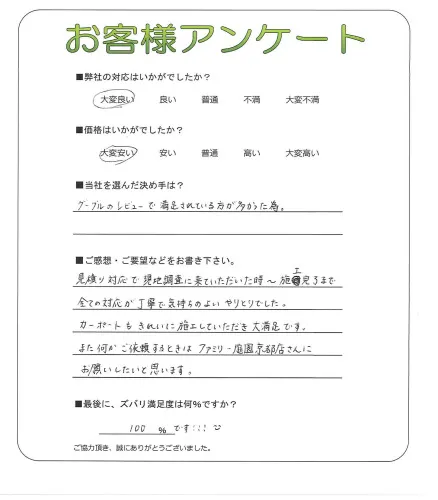 お客様アンケート
■弊社の対応はいかがでしたか？
大変良い 良い 普通 不満 大変不満
■価格はいかがでしたか？
大変安い 安い 普通 高い 大変高い
■当社を選んだ決め手は？
グーグルのレビューで満足されている方が多かった為。
■ご感想・ご要望などをお書き下さい。
見積り対応で現地調査に来ていただいた時〜施工完了まで
全ての対応が丁寧で気持ちのよいやりとりでした。
カーポートもきれいに施工していただき大満足です。
また何かご依頼するときはファミリー庭園京都店さんに
お願いしたいと思います。
■最後に、ズバリ満足度は何％ですか？
100 ％です!!!
ご協力頂き、誠にありがとうございました。